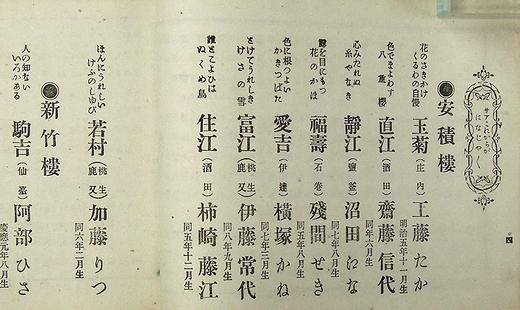 安積樓
花のさきかけ
くるわの自慢
玉菊(庄內)工藤たか
明治五年十一月生
色でまよわす
八重櫻
直江(酒田)齋藤信代
同年六月生
心みだれぬ
糸やなき
靜江(鹽釜)沼田はな
同七年八月生
露を目にもつ
花のかほ
福壽(石卷)殘間せき
同五年八月生
色に根つよい
かきつばた
愛吉(伊達)橫塚かね
同七年三月生
とけてうれしき
けさの雪
富江(桃生鹿又)伊藤常代
同八年九月生
誰とこよひは
ぬくめ鳥
住江(酒田)柿崎藤江
同五年十二月生
ほんにうれしい
けふのしゆび
若村(桃生鹿又)加藤りつ
同六年二月生
新竹樓
人の知ない
いろかある
駒吉(仙臺)阿部ひさ
慶應元年八月生
四